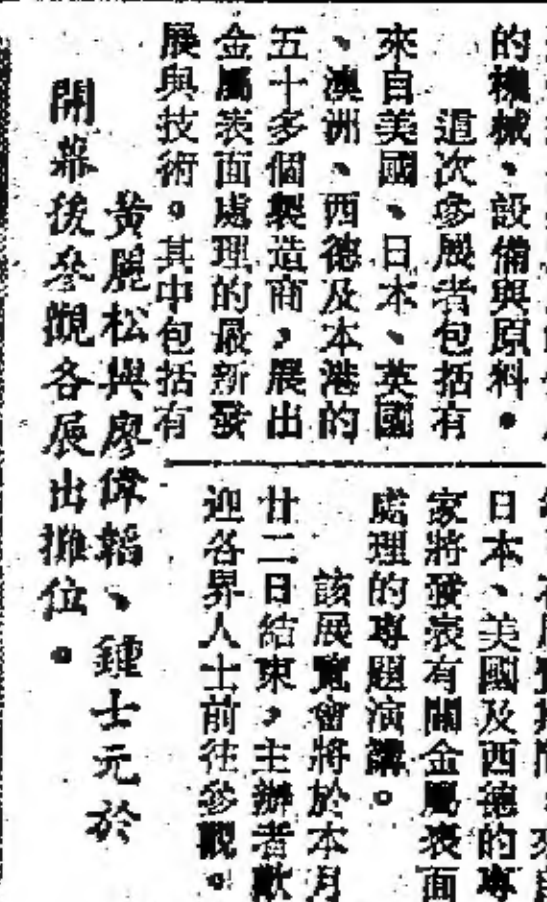 的機械、設備與原料。
這次參展者包括有
來自美國、日本、英國
、澳洲、西德及本港的
五十多個製造商，展出
金屬表面處理的最新發
展與技術。其中包括有
日本、美國及西德的專
家將發表有關金屬表面
處理的專題演講。
該展覽會將於本月
廿二日結束，主辦者歡
迎各界人士前往參觀。
黃麗松與廖偉韜、鍾士元於
開幕後參觀各展出攤位。